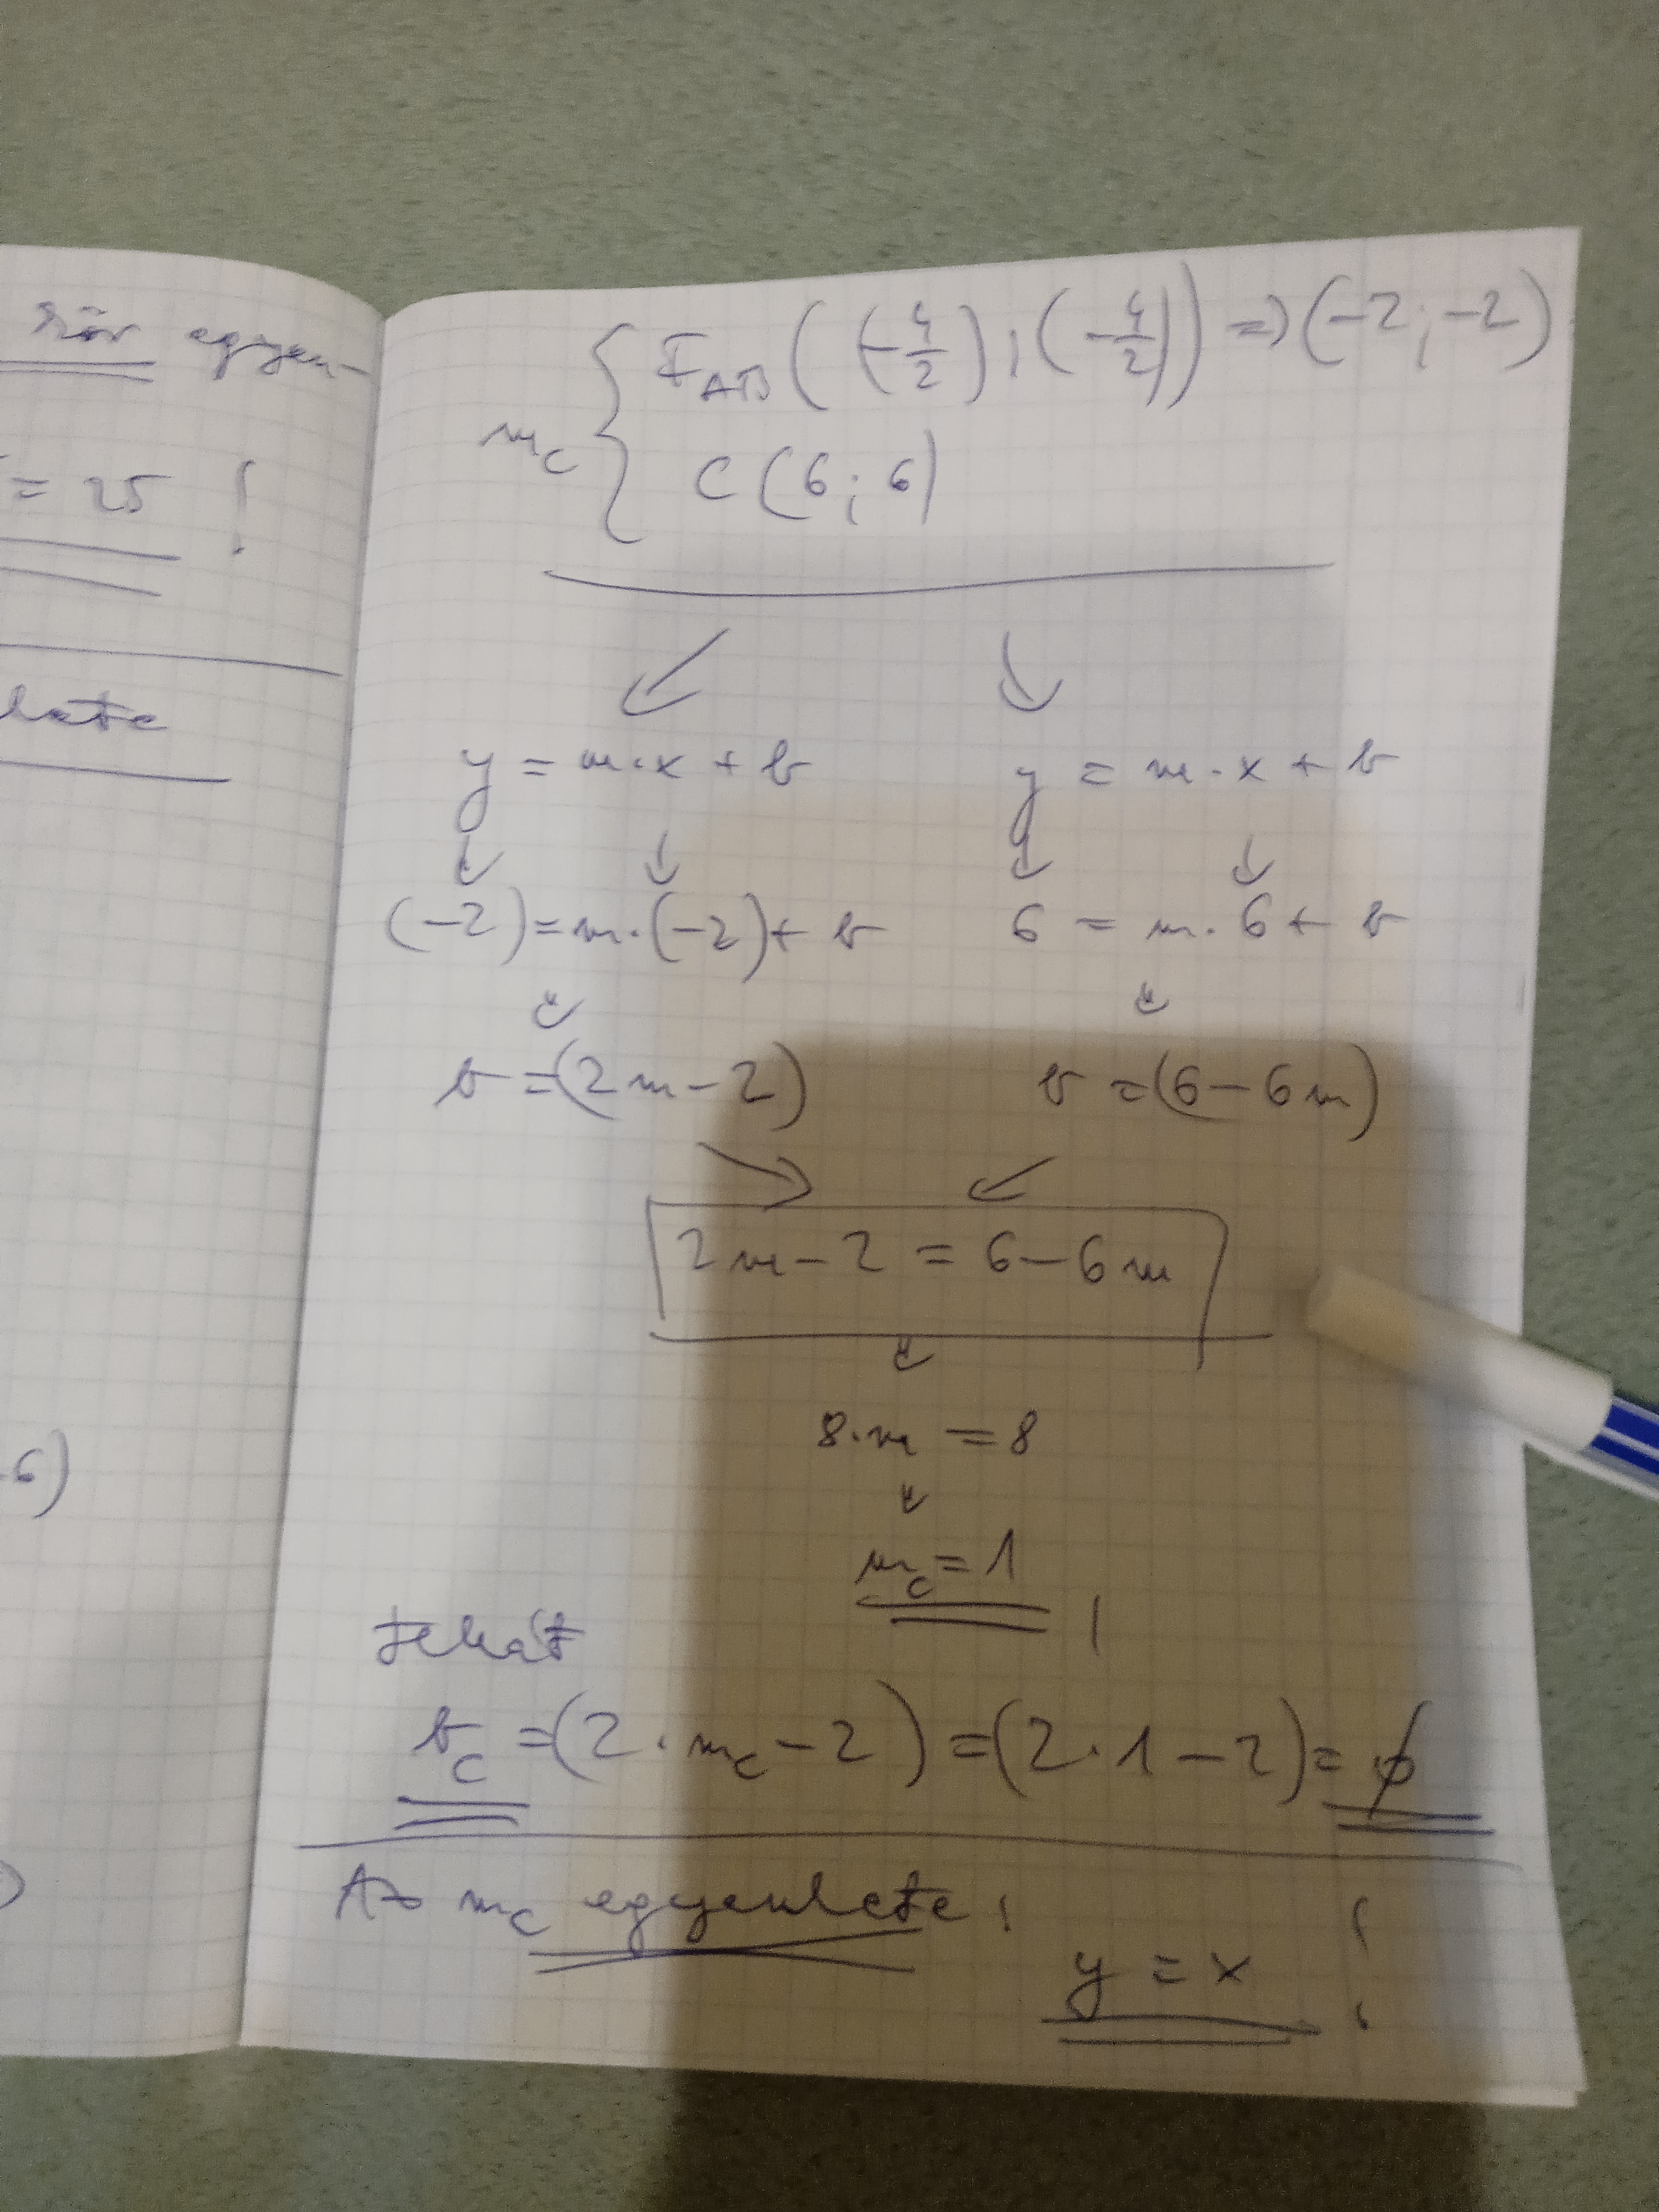 kör egyen-
= 25 !
lete
.6)
)
m_c { F_AB ((-4/2) ; (-4/2)) => (-2 ; -2)
C (6 ; 6)
y = m·x + b y = m·x + b
(-2) = m·(-2) + b 6 = m·6 + b
b = (2m - 2) b = (6 - 6m)
2m - 2 = 6 - 6m
8·m = 8
m_c = 1 !
tehát
b_c = (2·m_c - 2) = (2·1 - 2) = 0
Az m_c egyenlete :
y = x !